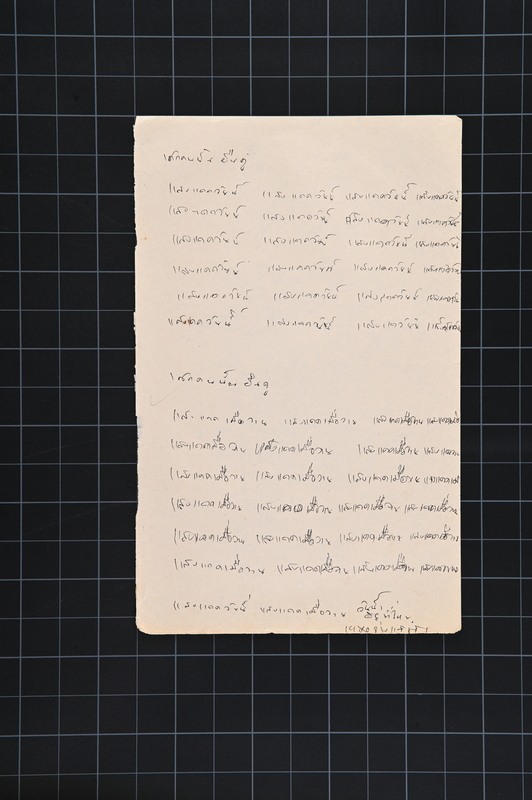 เด็กคนนั้น ยืนดู
แสงแดดวันนี้ แสงแดดวันนี้ แสงแดดวันนี้ แสงแดดวันนี้
แสงแดดวันนี้ แสงแดดวันนี้ แสงแดดวันนี้ แสงแดดวันนี้
แสงแดดวันนี้ แสงแดดวันนี้ แสงแดดวันนี้ แสงแดดวันนี้
แสงแดดวันนี้ แสงแดดวันนี้ แสงแดดวันนี้ แสงแดดวันนี้
แสงแดดวันนี้ แสงแดดวันนี้ แสงแดดวันนี้ แสงแดดวันนี้
แสงแดดวันนี้ แสงแดดวันนี้ แสงแดดวันนี้ แสงแดดวันนี้
เด็กคนนั้น ยืนดู
แสงแดดเมื่อวาน แสงแดดเมื่อวาน แสงแดดเมื่อวาน แสงแดดเมื่อ
แสงแดดเมื่อวาน แสงแดดเมื่อวาน แสงแดดเมื่อวาน แสงแดด
แสงแดดเมื่อวาน แสงแดดเมื่อวาน แสงแดดเมื่อวาน แสงแดดเมื่อ
แสงแดดเมื่อวาน แสงแดดเมื่อวาน แสงแดดเมื่อวาน แสงแดดเมื่อวาน
แสงแดดเมื่อวาน แสงแดดเมื่อวาน แสงแดดเมื่อวาน แสงแดดเมื่อวาน
แสงแดดเมื่อวาน แสงแดดเมื่อวาน แสงแดดเมื่อวาน แสงแดดเมื่อวาน
แสงแดดวันนี้ แสงแดดเมื่อวาน วันนี้
อยู่ที่ไหน